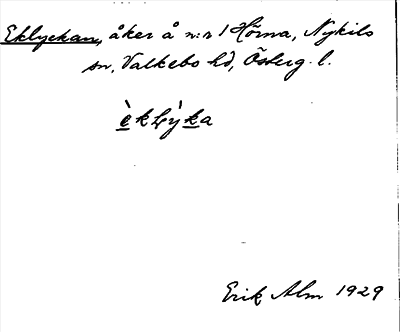 Eklyckan, åker å n:r 1 Hörna, Nykils
sn, Valkebo hd, Österg. l.
èkļỳka
Erik Alm 1929